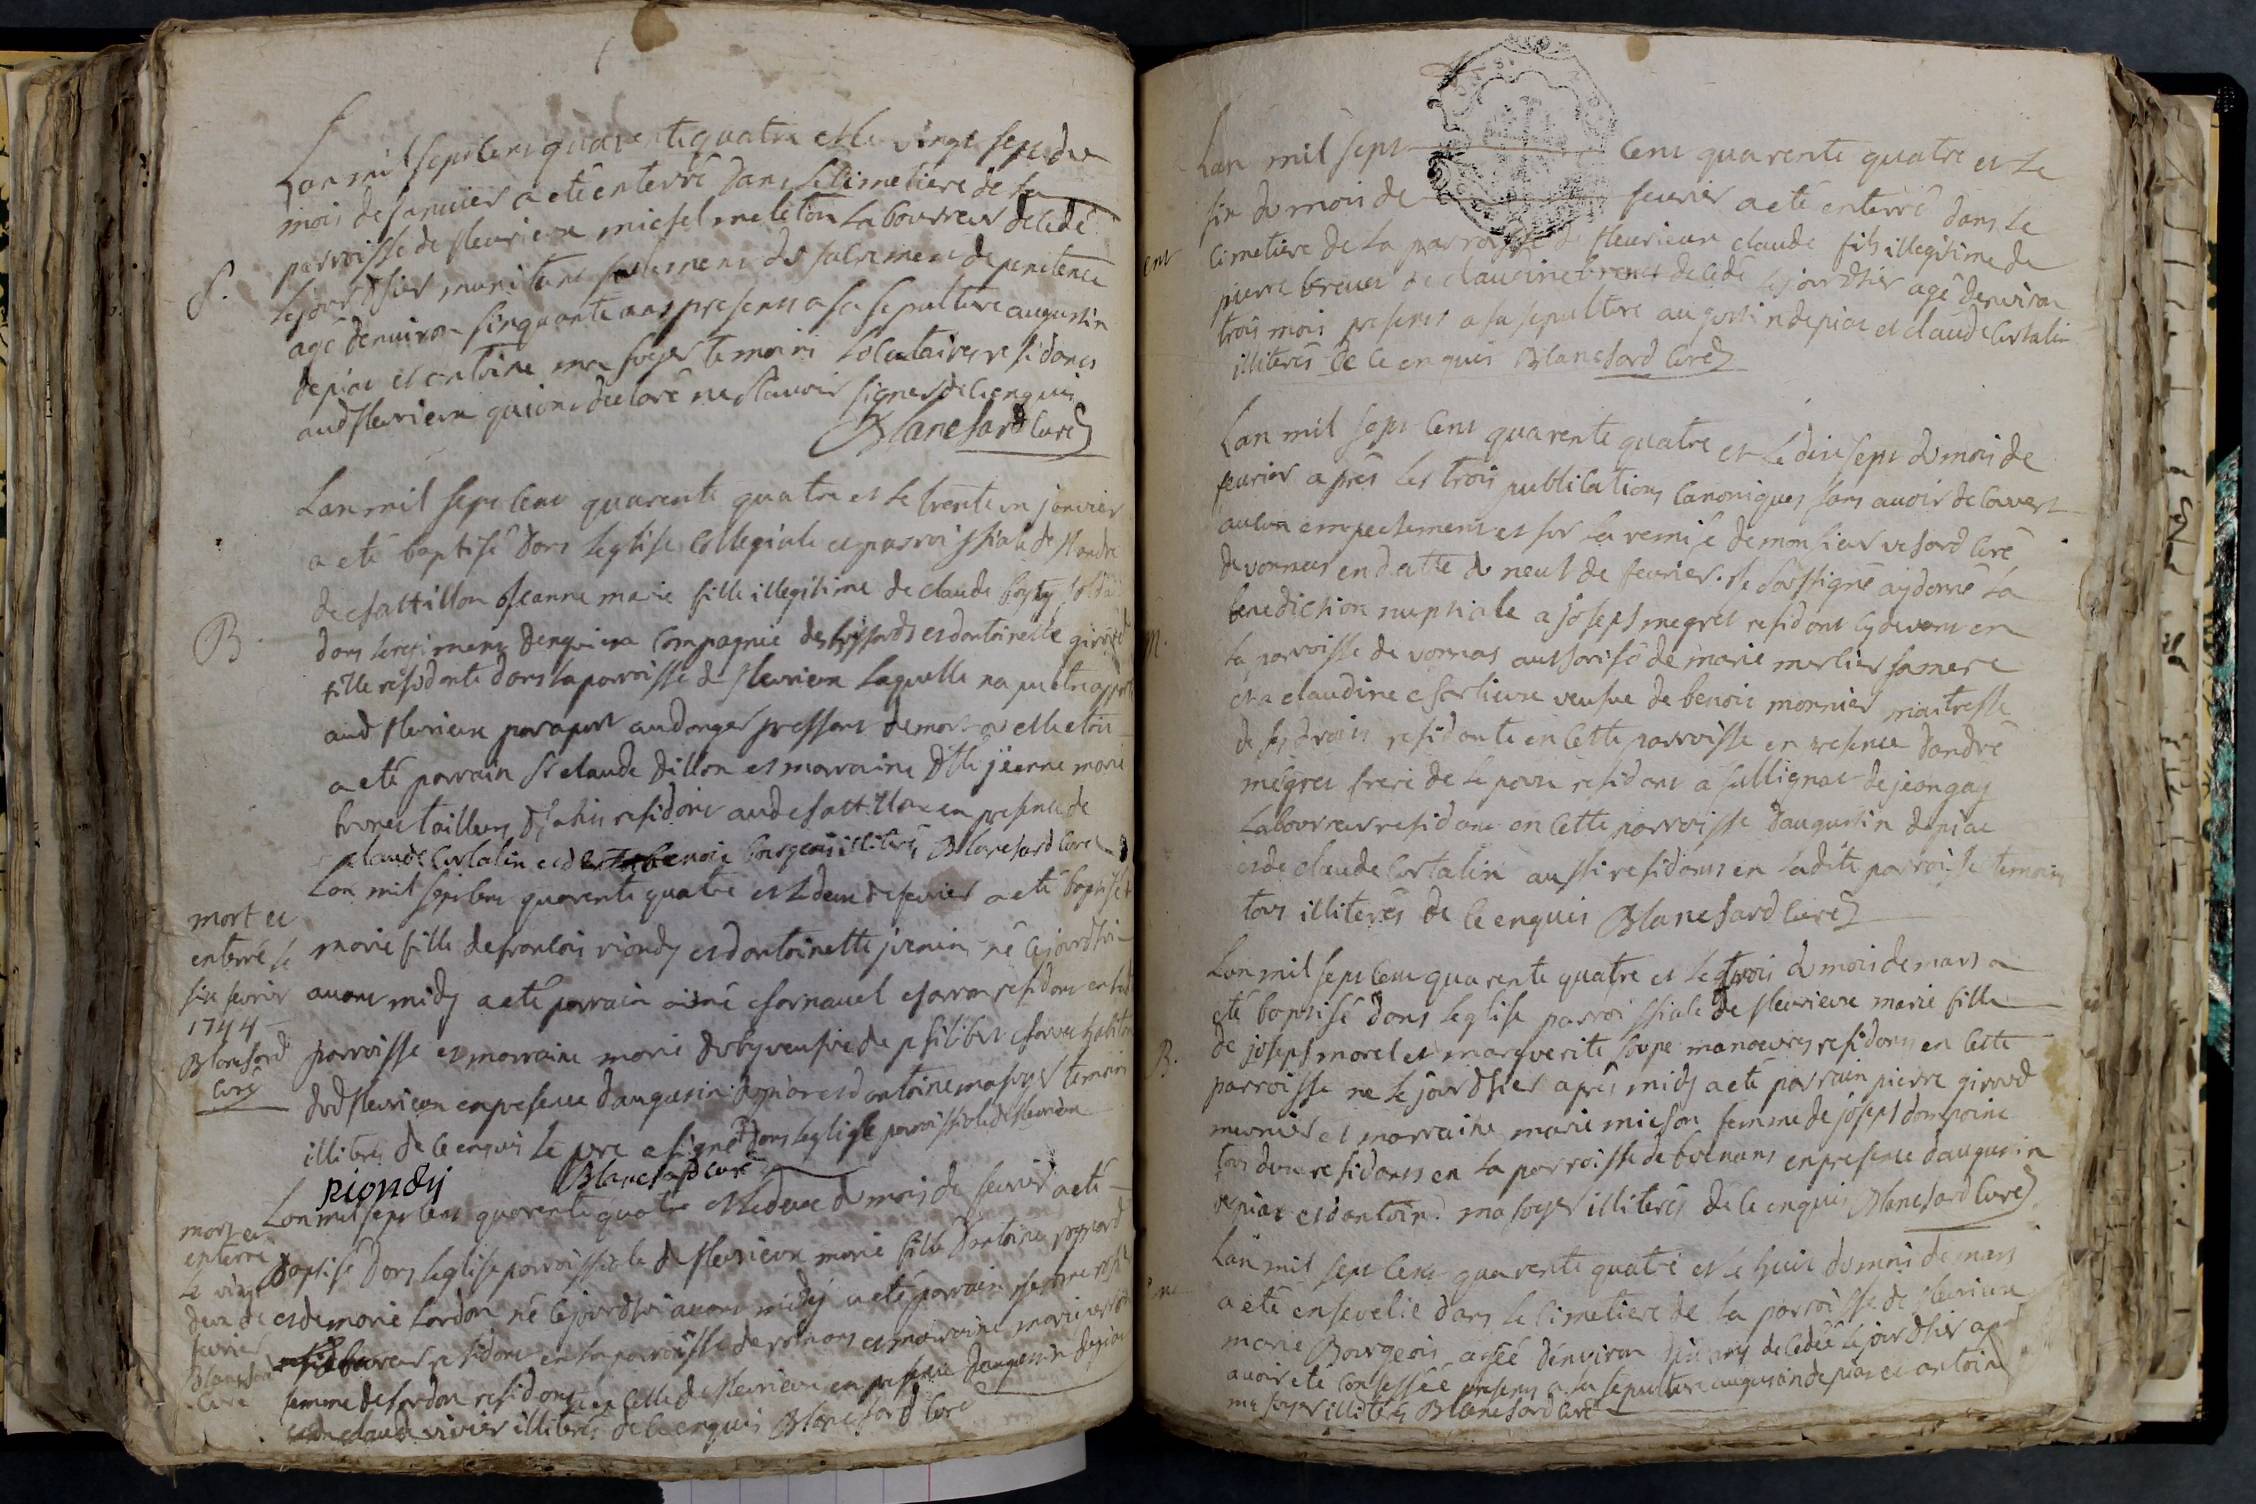 Lan mil sept cens quarente quatre et le vingt sept du
mois de janvier a eté enterré dans le cimetiere de la
parroisse de fleurieux michel meleton laboureur decedé
le jour dhier muni tant seulement du sacrement de penitence
S.
agé denviron sinquante ans presents a sa sepulture augustin
depiae et antoine ma soyer temoins locataires residants
aud fleurieux qui ont declaré ne scauoir signer de ce enquis
Blanchard Curé
Lan mil sept cens quarente quatre et le trente un janvier
a eté baptisé dans leglise collegiale et parroissiale de st andré
de chattillon jeanne marie fille illegitime de claude soldat
B.
dans le regiment compagnie et dantoinette
fille residante dans la parroisse de fleurieux laquelle na pu etre
aud fleurieux par aport au danger pressant de mort ou elle etoit
a eté parrain sr claude dillon et marraine dlle jeanne marie
brunet tailleurs residants aud chattillon en presence de
claude curtalin et de benoit bourgeois illiterés Blanchard Curé
Lan mil sept cens quarente quatre et le deux de fevrier a eté baptisée
mort et
enterré le
six fevrier
1744
Blanchard
Curé
marie fille de francois riondy et dantoinette né ce jourdhui
avant midy a eté parrain aimé charnauel charron residant en
parroisse et marraine marie veufve de philibert
dud fleurieux en presence daugustin depiae et dantoine ma soyer temoins
illiterés de ce enquis le pere a signé dans leglise parroissiale de fleurieux
riondy Blanchard curé
Lan mil sept cens quarente quatre et le deux du mois de fevrier a eté
mort et
enterré
le vingt
deux de
fevrier
Blanchard
Curé
baptisé dans leglise parroissiale de fleurieux marie fille dantoine
et de marie lardon né ce jourdhui avant midy a eté parrain
laboureur residant en la parroisse de romans et marraine marie
femme de lardon residante en celle de fleurieux en presence daugustin depiae
claude vivier illiterés de ce enquis Blanchard Curé
Lan mil sept cens quarente quatre et le
six du mois de fevrier a eté enterré dans le
cimetiere de la parroisse de fleurieux claude fils illegitime de
pierre brevet et claudine decedé le jour dhier agé denviron
trois mois presents a sa sepulture augustin depiae et claude Curtalin
illiterés de ce enquis Blanchard Curé
Lan mil sept cens quarente quatre et le dix sept du mois de
fevrier aprés les trois publications canoniques sans auoir decouvert
aucun empechement et sur la remise de monsieur curé
de vonnas en datte du neuf de fevrier. Je soussigné ay donné la
benediction nuptiale a joseph megret residant cy devant en
M.
la parroisse de vonnas authorisé de marie merlier sa mere
et a claudine charlieux veufve de benoit monnier maitresse
de ses droits residante en cette parroisse en presence dandré
megret frere de le poux residant a sullignat de jean gay
laboureur residant en cette parroisse daugustin depiae
et de claude Curtalin aussi residants en ladite parroisse temoins
tous illiterés de ce enquis Blanchard Curé
Lan mil sept cens quarente quatre et le trois du mois de mars a
eté baptisé dans leglise parroissiale de fleurieux marie fille
B.
de joseph morel et marguerite soupe manoeuvres residants en cette
parroisse né le jour dhier aprés midy a eté parrain pierre giroud
meunier et marraine marie michon femme de joseph dompoine
tous deux residants en la parroisse de buenans en presence daugustin
depiae et dantoine ma soyer illiterés de ce enquis Blanchard Curé
Lan mil sept cens quarente quatre et le huit du mois de mars
a eté ensevelie dans le cimetiere de la parroisse de fleurieux
marie Bourgeois agée denviron ans decedée le jour dhier aprés
auoir eté confessée presents a sa sepulture augustin depiae et antoine
ma soyer illiterés Blanchard Curé